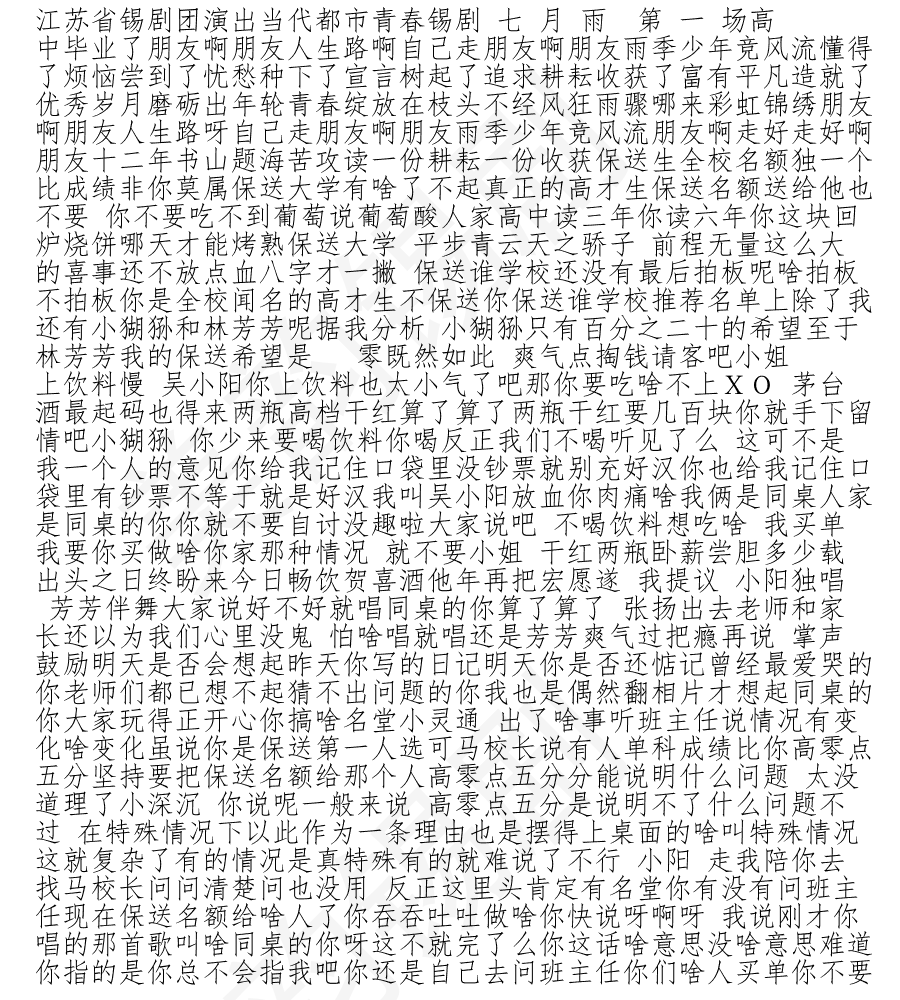 江苏省锡剧团演出当代都市青春锡剧 七 月 雨  第 一 场高
中毕业了朋友啊朋友人生路啊自己走朋友啊朋友雨季少年竞风流懂得
了烦恼尝到了忧愁种下了宣言树起了追求耕耘收获了富有平凡造就了
优秀岁月磨砺出年轮青春绽放在枝头不经风狂雨骤哪来彩虹锦绣朋友
啊朋友人生路呀自己走朋友啊朋友雨季少年竞风流朋友啊走好走好啊
朋友十二年书山题海苦攻读一份耕耘一份收获保送生全校名额独一个
比成绩非你莫属保送大学有啥了不起真正的高才生保送名额送给他也
不要 你不要吃不到葡萄说葡萄酸人家高中读三年你读六年你这块回
炉烧饼哪天才能烤熟保送大学 平步青云天之骄子 前程无量这么大
的喜事还不放点血八字才一撇 保送谁学校还没有最后拍板呢啥拍板
不拍板你是全校闻名的高才生不保送你保送谁学校推荐名单上除了我
还有小猢狲和林芳芳呢据我分析 小猢狲只有百分之二十的希望至于
林芳芳我的保送希望是  零既然如此 爽气点掏钱请客吧小姐
上饮料慢 吴小阳你上饮料也太小气了吧那你要吃啥不上XO 茅台
酒最起码也得来两瓶高档干红算了算了两瓶干红要几百块你就手下留
情吧小猢狲 你少来要喝饮料你喝反正我们不喝听见了么 这可不是
我一个人的意见你给我记住口袋里没钞票就别充好汉你也给我记住口
袋里有钞票不等于就是好汉我叫吴小阳放血你肉痛啥我俩是同桌人家
是同桌的你你就不要自讨没趣啦大家说吧 不喝饮料想吃啥 我买单
我要你买做啥你家那种情况 就不要小姐 干红两瓶卧薪尝胆多少载
出头之日终盼来今日畅饮贺喜酒他年再把宏愿遂 我提议 小阳独唱
芳芳伴舞大家说好不好就唱同桌的你算了算了 张扬出去老师和家
长还以为我们心里没鬼 怕啥唱就唱还是芳芳爽气过把瘾再说 掌声
鼓励明天是否会想起昨天你写的日记明天你是否还惦记曾经最爱哭的
你老师们都已想不起猜不出问题的你我也是偶然翻相片才想起同桌的
你大家玩得正开心你搞啥名堂小灵通 出了啥事听班主任说情况有变
化啥变化虽说你是保送第一人选可马校长说有人单科成绩比你高零点
五分坚持要把保送名额给那个人高零点五分分能说明什么问题 太没
道理了小深沉 你说呢一般来说 高零点五分是说明不了什么问题不
过 在特殊情况下以此作为一条理由也是摆得上桌面的啥叫特殊情况
这就复杂了有的情况是真特殊有的就难说了不行 小阳 走我陪你去
找马校长问问清楚问也没用 反正这里头肯定有名堂你有没有问班主
任现在保送名额给啥人了你吞吞吐吐做啥你快说呀啊呀 我说刚才你
唱的那首歌叫啥同桌的你呀这不就完了么你这话啥意思没啥意思难道
你指的是你总不会指我吧你还是自己去问班主任你们啥人买单你不要